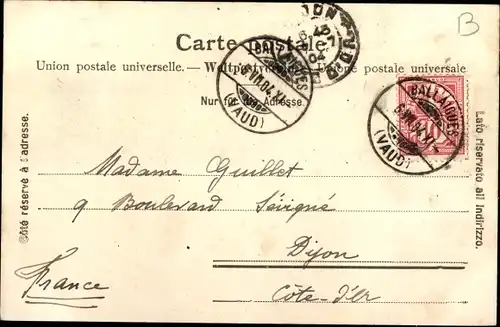 B
Carte postale.
Union postale universelle. — Weltpostverein. — Unione postale universale
Nur für die Adresse.
BALLAIGUES
6.VII.04.XI
(VAUD)
BALLAIGUES
6.VII.04.XI
(VAUD)
10
Côté réservé à l'adresse.
Lato riservato all indirizzo.
Madame Guillet
9 Boulevard Sévigné
Dijon
France
Côte-d'Or